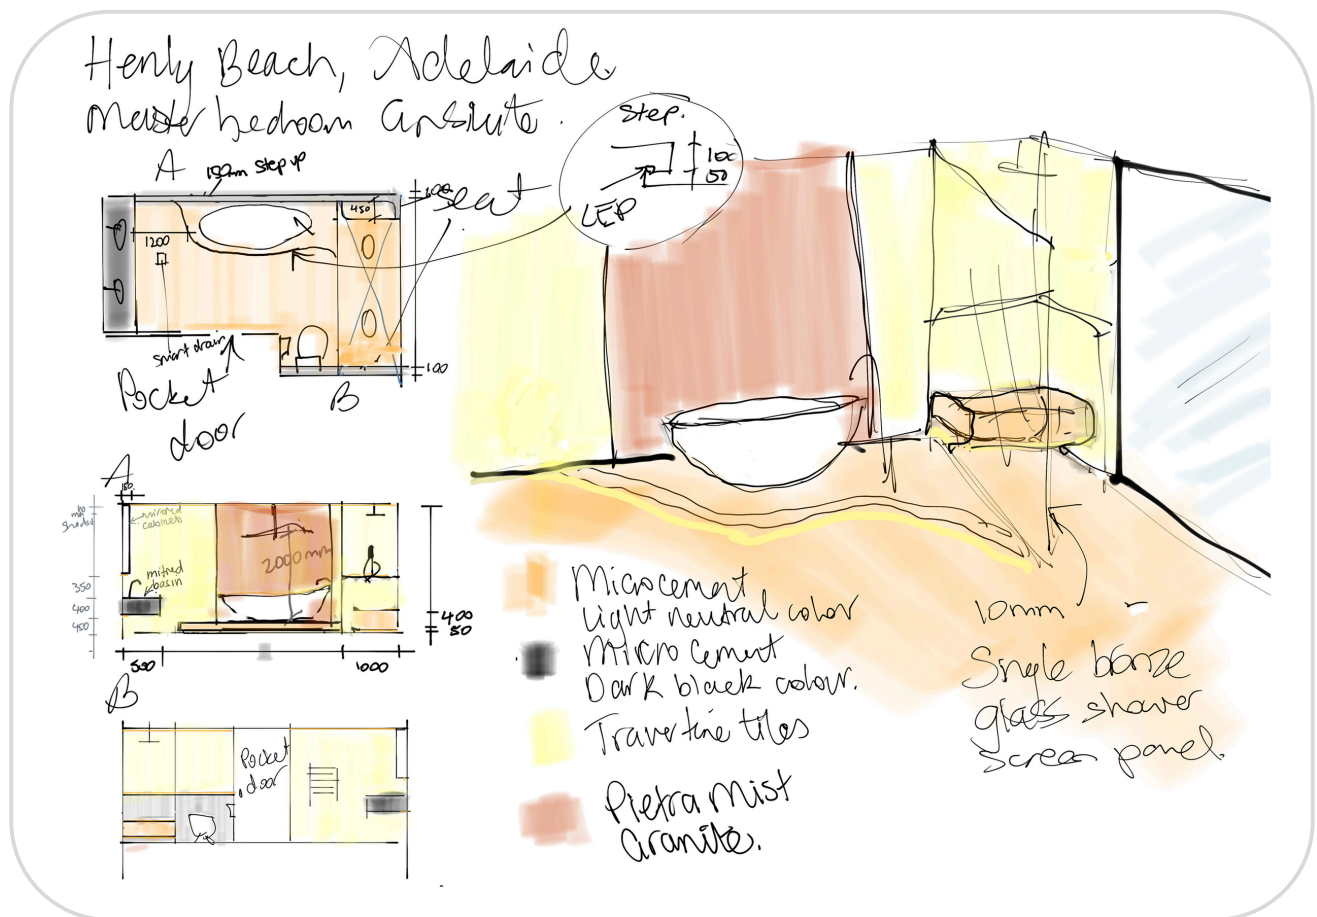 Henly Beach, Adelaide
Master bedroom ensiute.
A
150mm step up
Step.
100
50
LED
100
seat
450
1200
smart drain
100
Pocket
door
B
A
150
mirrored
cabinets
mitred
basin
2000 mm
350
400
450
400
50
500
1000
B
Pocket
door
Microcement
Light neutral color
Micro Cement
Dark black colour.
Travertine tiles
Pietra Mist
Granite.
10mm
Single bronze
glass shower
screen panel.